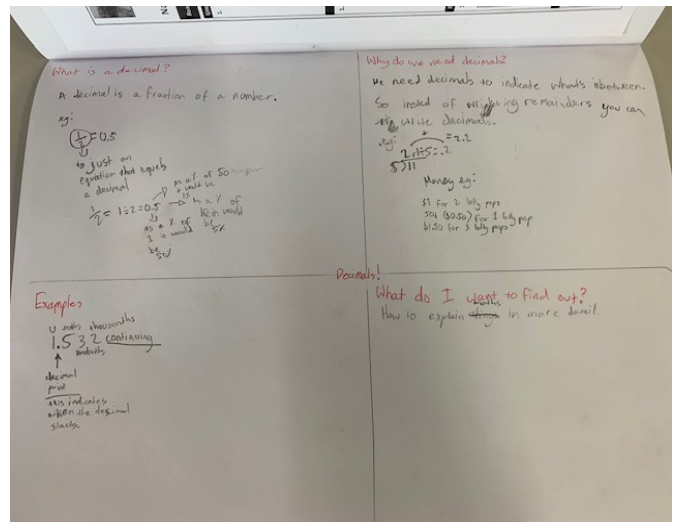 What is a decimal?
A decimal is a fraction of a number.
eg:
1/2 = 0.5
Just an
equation that equals
a decimal
1/2 = 1÷2=0.5
as a % of 50
it would be
as a % of
it would
be
5%
as a % of
1 it would
be
50%
Why do we need decimals?
We need decimals to indicate what's inbetween.
So insted of writing remainders you can
write decimals.
eg:
=2.2
2 r1÷5=.2
5)11
Money eg:
$1 for 2 lolly pops
50¢ ($0.50) for 1 lolly pop
$1.50 for 3 lolly pops
Decimals!
Examples
U tenths thousanths
1.532 continuing
hundreths
decimal
point
this indicates
when the decimal
starts.
What do I want to find out?
maths
How to explain things in more detail.